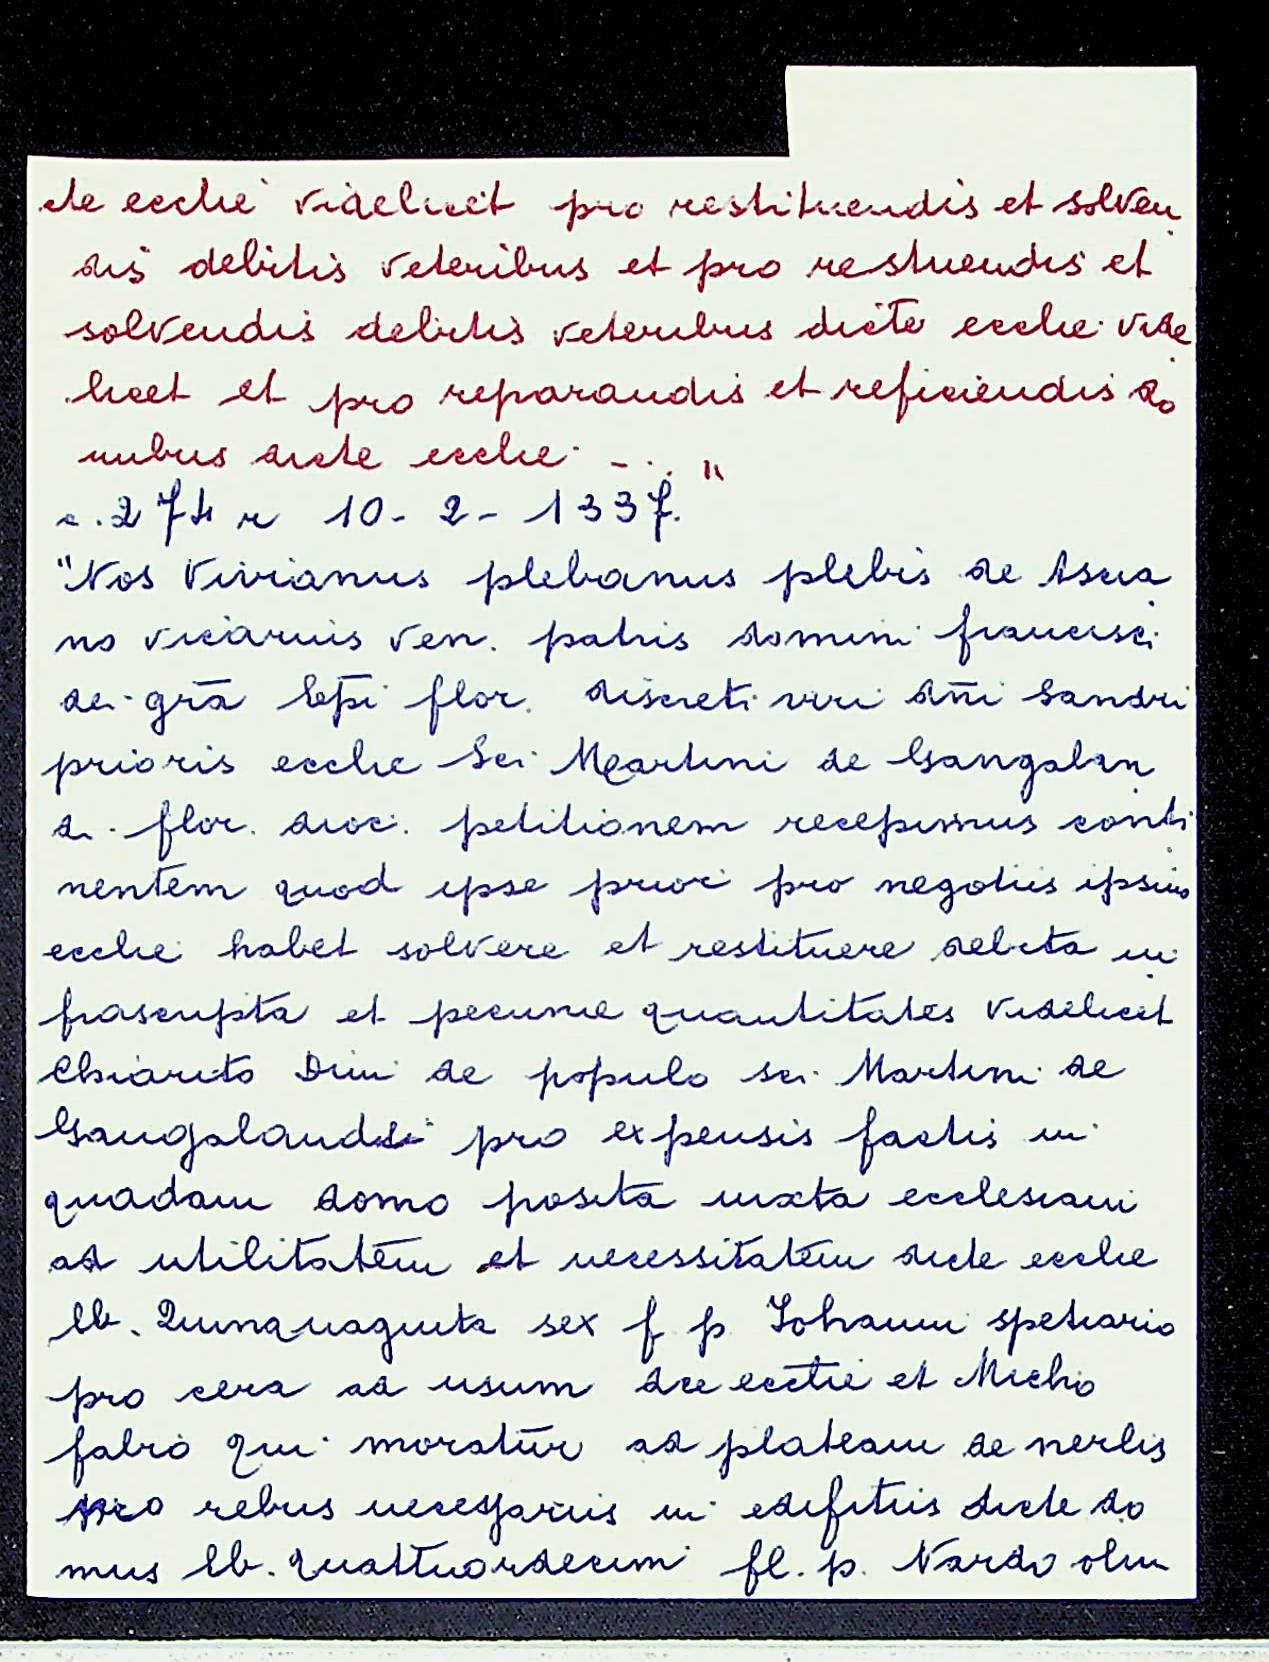 cte ecclie videlicet pro restituendis et solven
dis debitis veteribus et pro restuendis et
solvendis debitis veteribus dicte ecclie vide
licet et pro reparandis et reficiendis do
mibus dicte ecclie - . . "
c. 274 r 10 - 2 - 1337.
"Nos Vivianus plebanus plebis de Ascia
no vicarius ven. patris domini francisci
dei grā Epi flor. discreti viri dñi Sandri
prioris ecclie Sci Martini de Gangalan
di flor. dioc. petitionem recepimus conti
nentem quod ipse prior pro negotiis ipsius
ecclie habet solvere et restituere debita in
frascripta et pecunie quantitates videlicet
Chiarito Dini de populo sci Martini de
Gangalandi pro expensis factis in
quadam domo posita iuxta ecclesiam
ad utilitatem et necessitatem dicte ecclie
lb. Quinquaginta sex f p. Johanni spetiario
pro cera ad usum dce ecclie et Micho
fabro qui moratur ad plateam de nerlis
pro rebus necessariis in edifitiis dicte do
mus lb. quattuordecim fl. p. Nardo olim